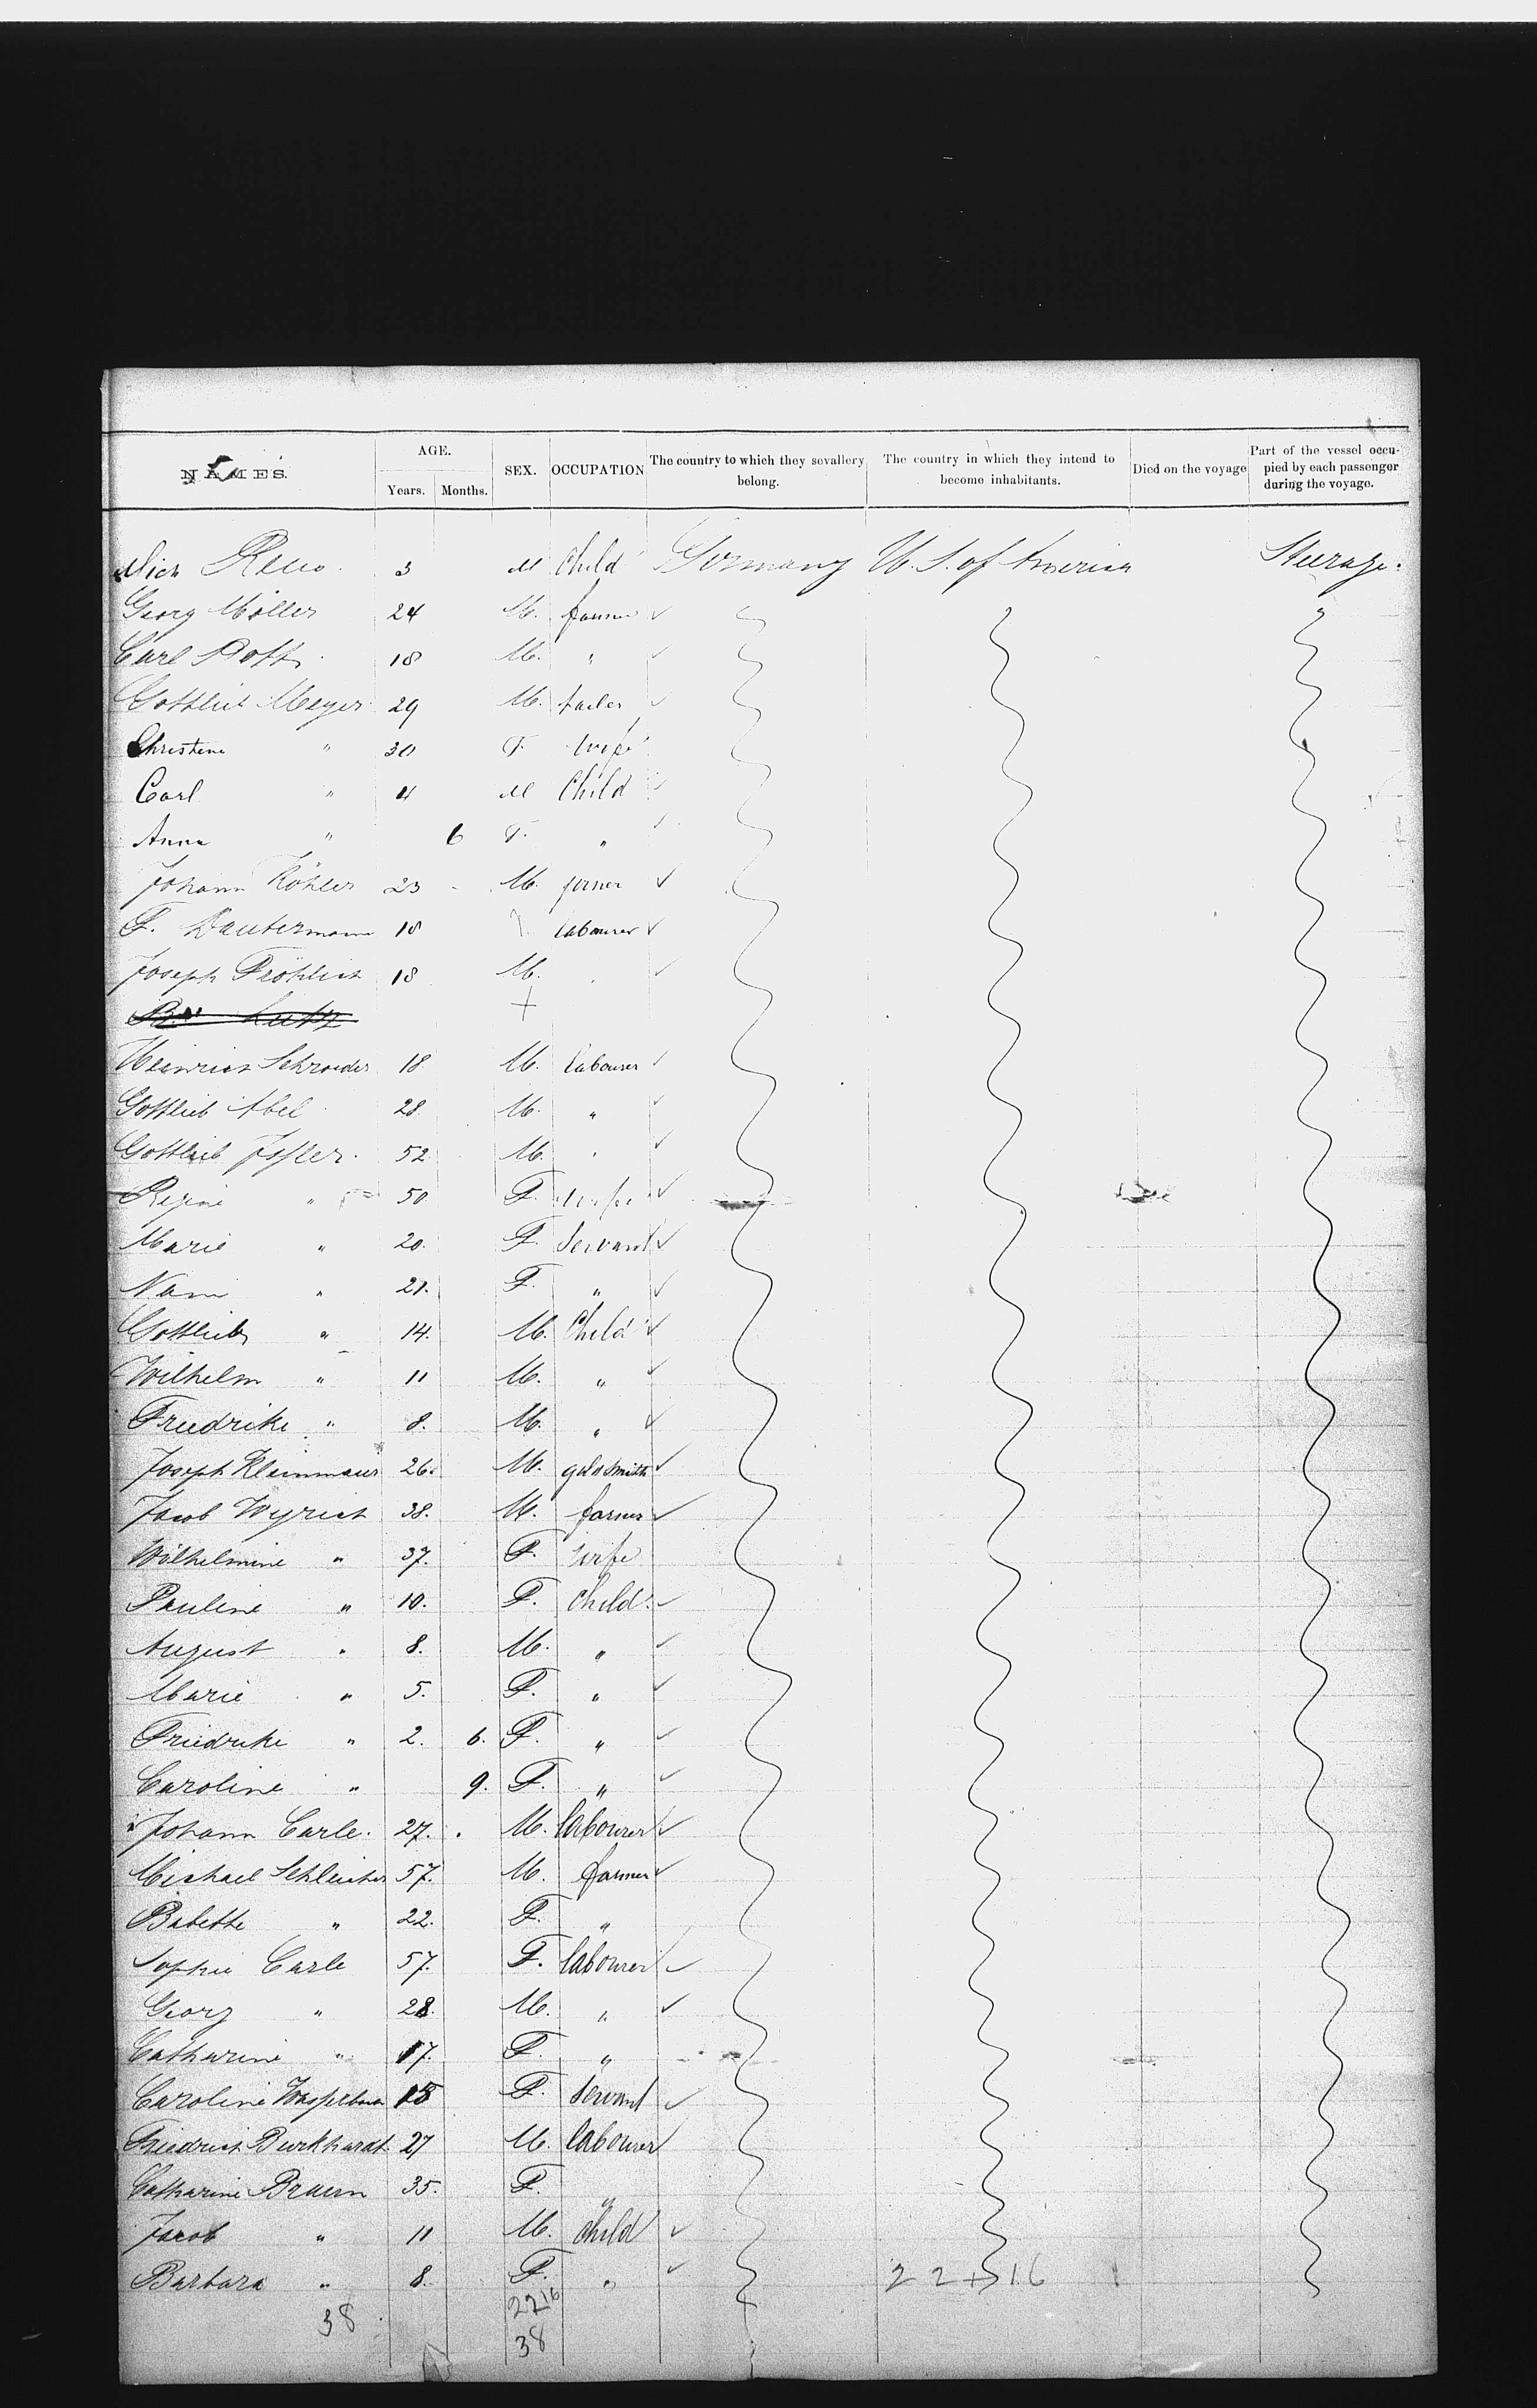 NAMES. AGE. Years. Months. SEX. OCCUPATION The country to which they sevallery belong. The country in which they intend to become inhabitants. Died on the voyage Part of the vessel occupied by each passenger during the voyage.
3 M Child Germany U. S. of America Steerage.
Georg Möller 24 M. farmer "
Carl 18 M. "
Gottlieb Meyer 29 M. tailer
Christine " 30 F. Wife
Carl " 4 M Child
Anna " 6 F. "
Johann Köhler 23 M. joiner
F. Dautermann 18 labourer
Joseph Fröhlich 18 M.
Lutz +
Heinrich Schroeder 18 M. labourer
Gottlieb Abel 28 M. "
Gottlieb 52 M. "
Regine " 50 F. wife
Marie " 20. F. Servant
" 21. F. "
Gottlieb " 14. M. Child
Wilhelm " 11 M. "
Friedrike " 8. M. "
Joseph Kleinmaier 26. M. goldsmith
Jacob Wyrich 38. M. farmer
Wilhelmine " 37. F. wife
Pauline " 10. F. Child
August " 8. M. "
Marie " 5. F. "
Friedrike " 2. 6. F. "
Caroline " 9. F. "
Johann Carle. 27. M. labourer
Michael Schleicher 57. M. farmer
Babette " 22. F. "
Sophie Carle 57. F. labourer
Georg " 28. M. "
Catharine " 17. F. "
Caroline 18 F. Servant
Friedrich Burkhardt 27 M. labourer
Catharine Braun 35. F. "
Jacob " 11 M. Child
Barbara " 8. F. " 22+16
38 22 16
38